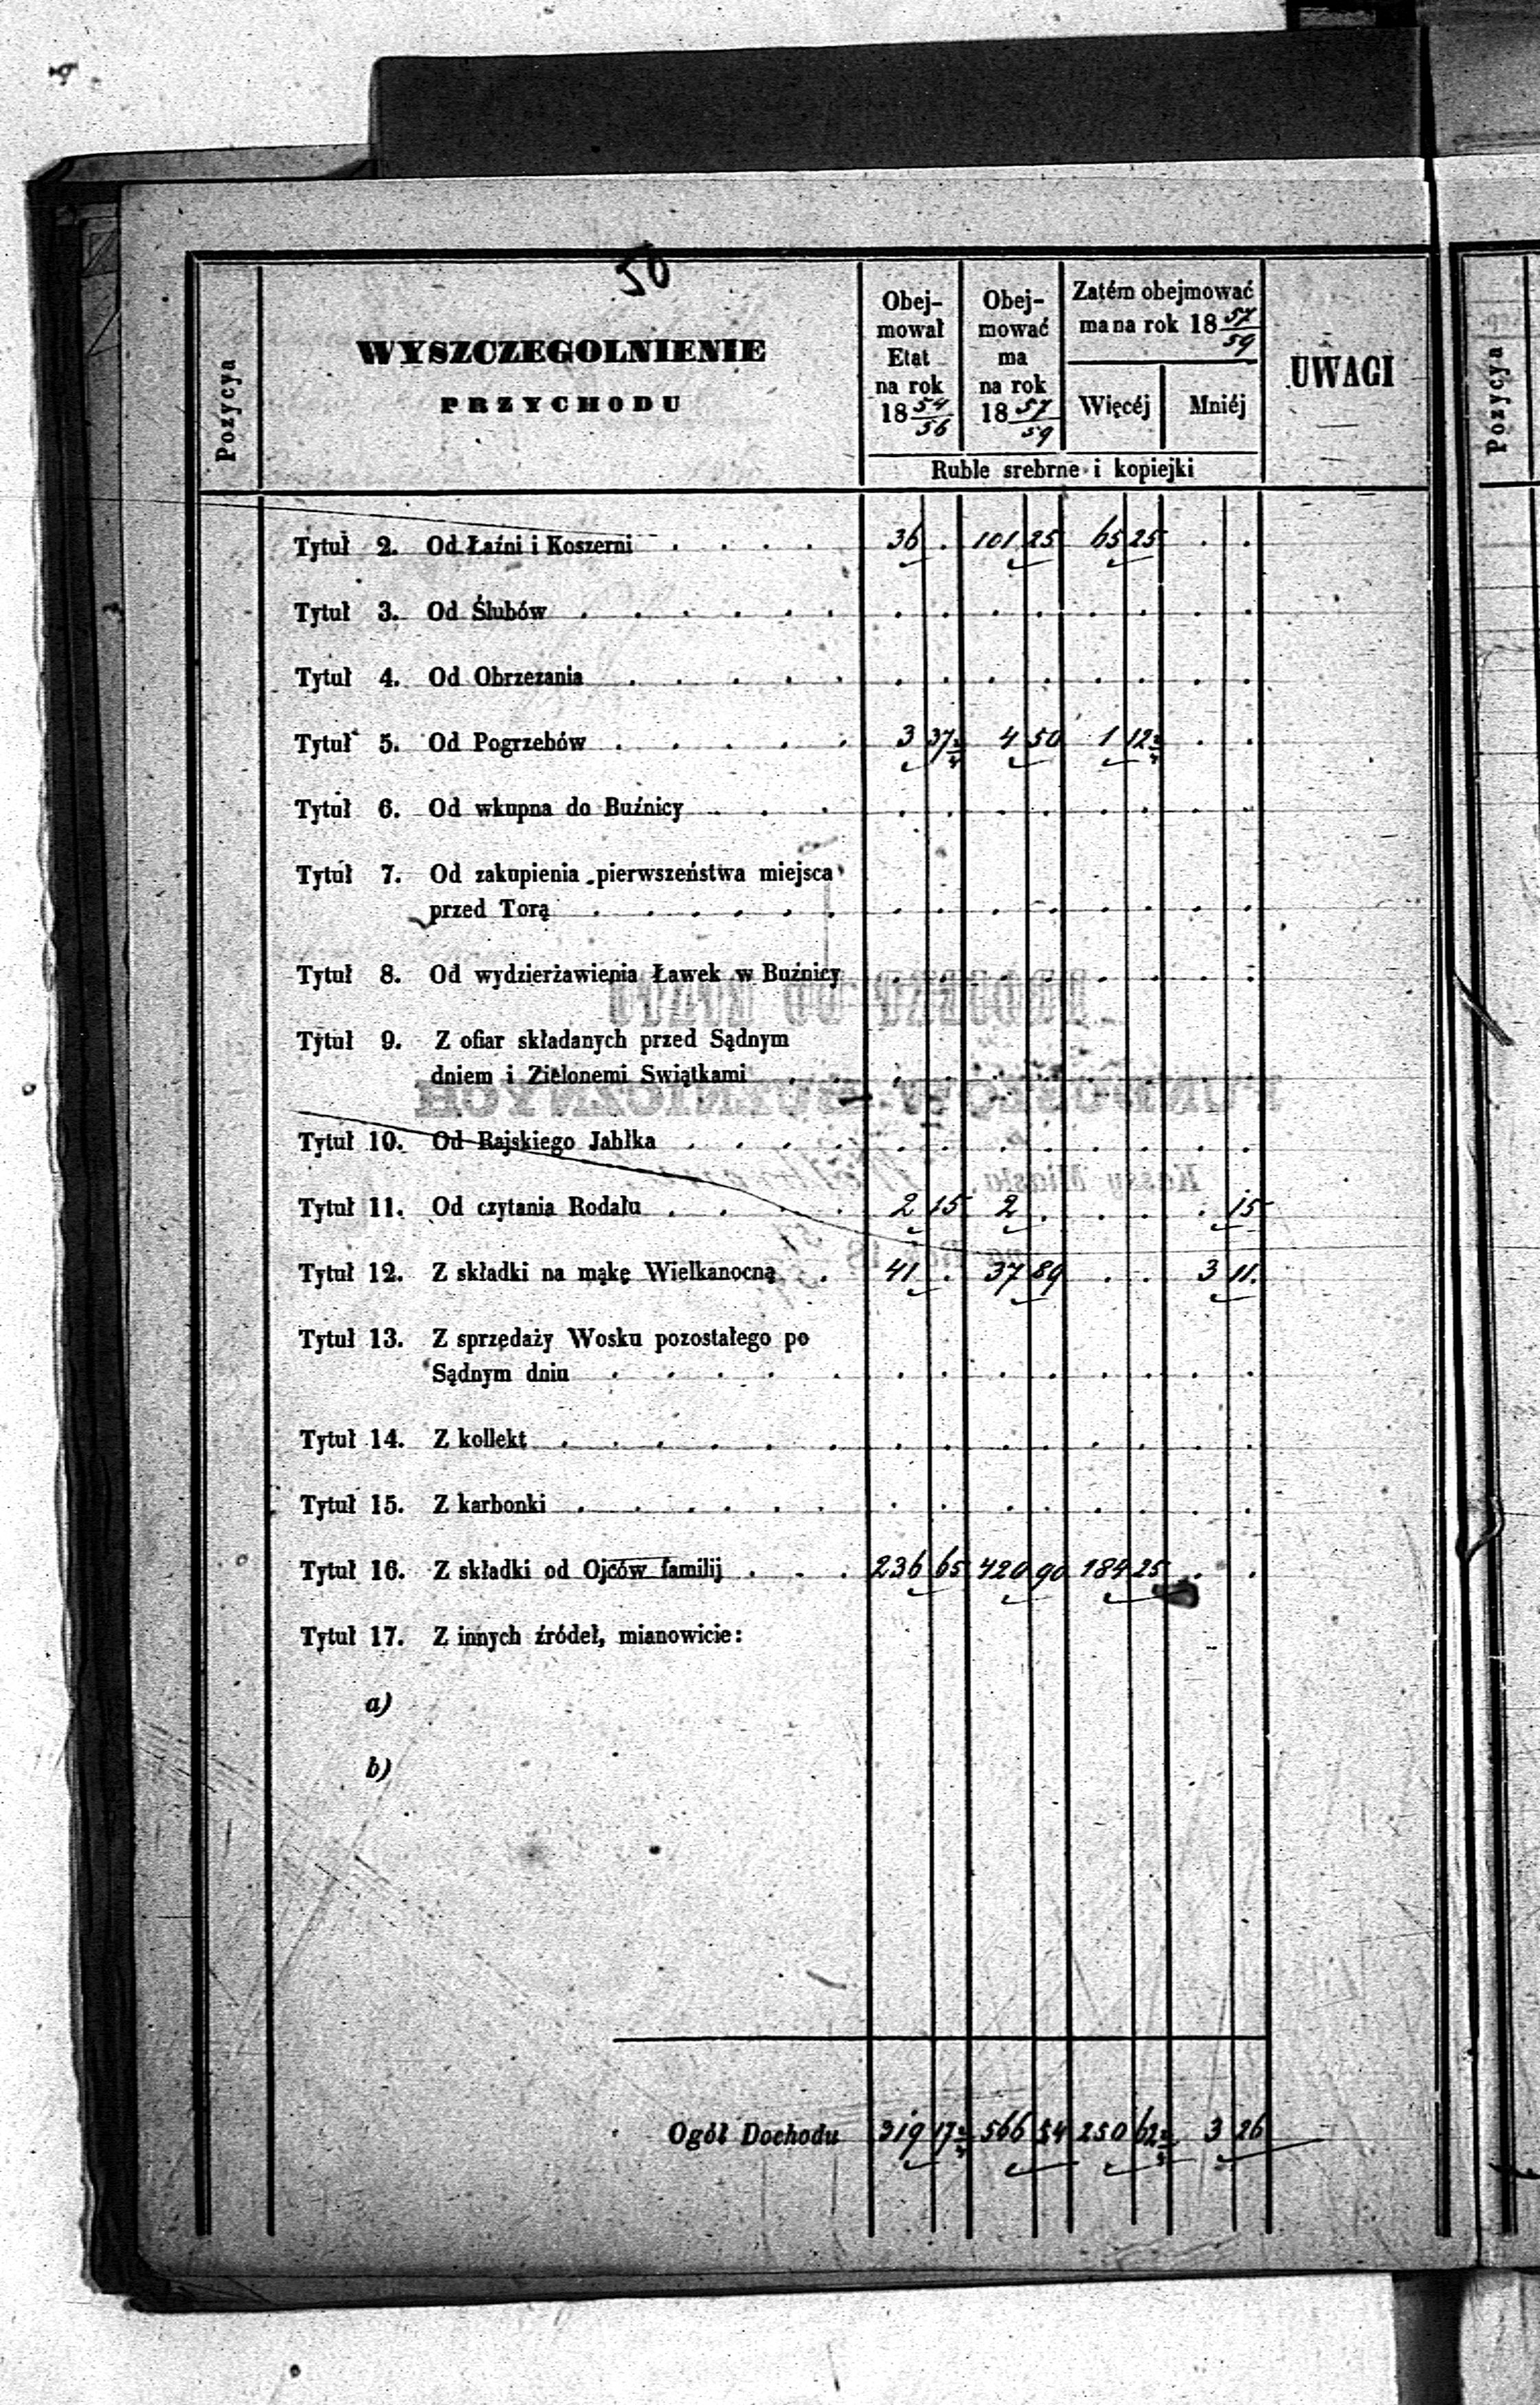 50
Pozycya
WYSZCZEGOLNIENIE
PRZYCHODU
Obej-
mował
Etat
na rok
18 54/56
Obej-
mować
ma
na rok
18 57/59
Zatém obejmować
ma na rok 18 57/59
Więcéj Mniéj
Ruble srebrne i kopiejki
UWAGI
Tytuł 2. Od Łaźni i Koszerni . . . . 36 . 101 25 65 25 . .
Tytuł 3. Od Ślubów . . . . . . . . . . . . . .
Tytuł 4. Od Obrzezania . . . . . . . . . . . . .
Tytuł 5. Od Pogrzebów . . . . . 3 37½ 4 50 1 12½ . .
Tytuł 6. Od wkupna do Buźnicy . . . . . . . . . . .
Tytuł 7. Od zakupienia pierwszeństwa miejsca
przed Torą . . . . . . . . . . . . . .
Tytuł 8. Od wydzierżawienia Ławek w Buźnicy . . . . . . . .
Tytuł 9. Z ofiar składanych przed Sądnym
dniem i Zielonemi Swiątkami . . . . . . . . . .
Tytuł 10. Od Rajskiego Jabłka . . . . . . . . . . . .
Tytuł 11. Od czytania Rodału . . . . 2 15 2 . . . . 15
Tytuł 12. Z składki na mąkę Wielkanocną . 41 . 37 89 . . 3 11.
Tytuł 13. Z sprzedaży Wosku pozostałego po
Sądnym dniu . . . . . . . . . . . . .
Tytuł 14. Z kollekt . . . . . . . . . . . . . .
Tytuł 15. Z karbonki . . . . . . . . . . . . .
Tytuł 16. Z składki od Ojców familij . . . 236 65 420 90 184 25 . .
Tytuł 17. Z innych źródeł, mianowicie:
a)
b)
Ogół Dochodu 319 17½ 566 54 250 62½ 3 26
Pozycya